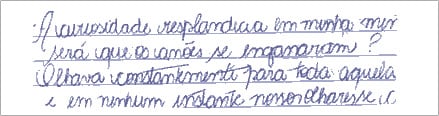 A curiosidade resplandecia em minha men
será que os anões se enganaram?
Olhava constantemente para toda aquela
e em nenhum instante nosso olhar se c